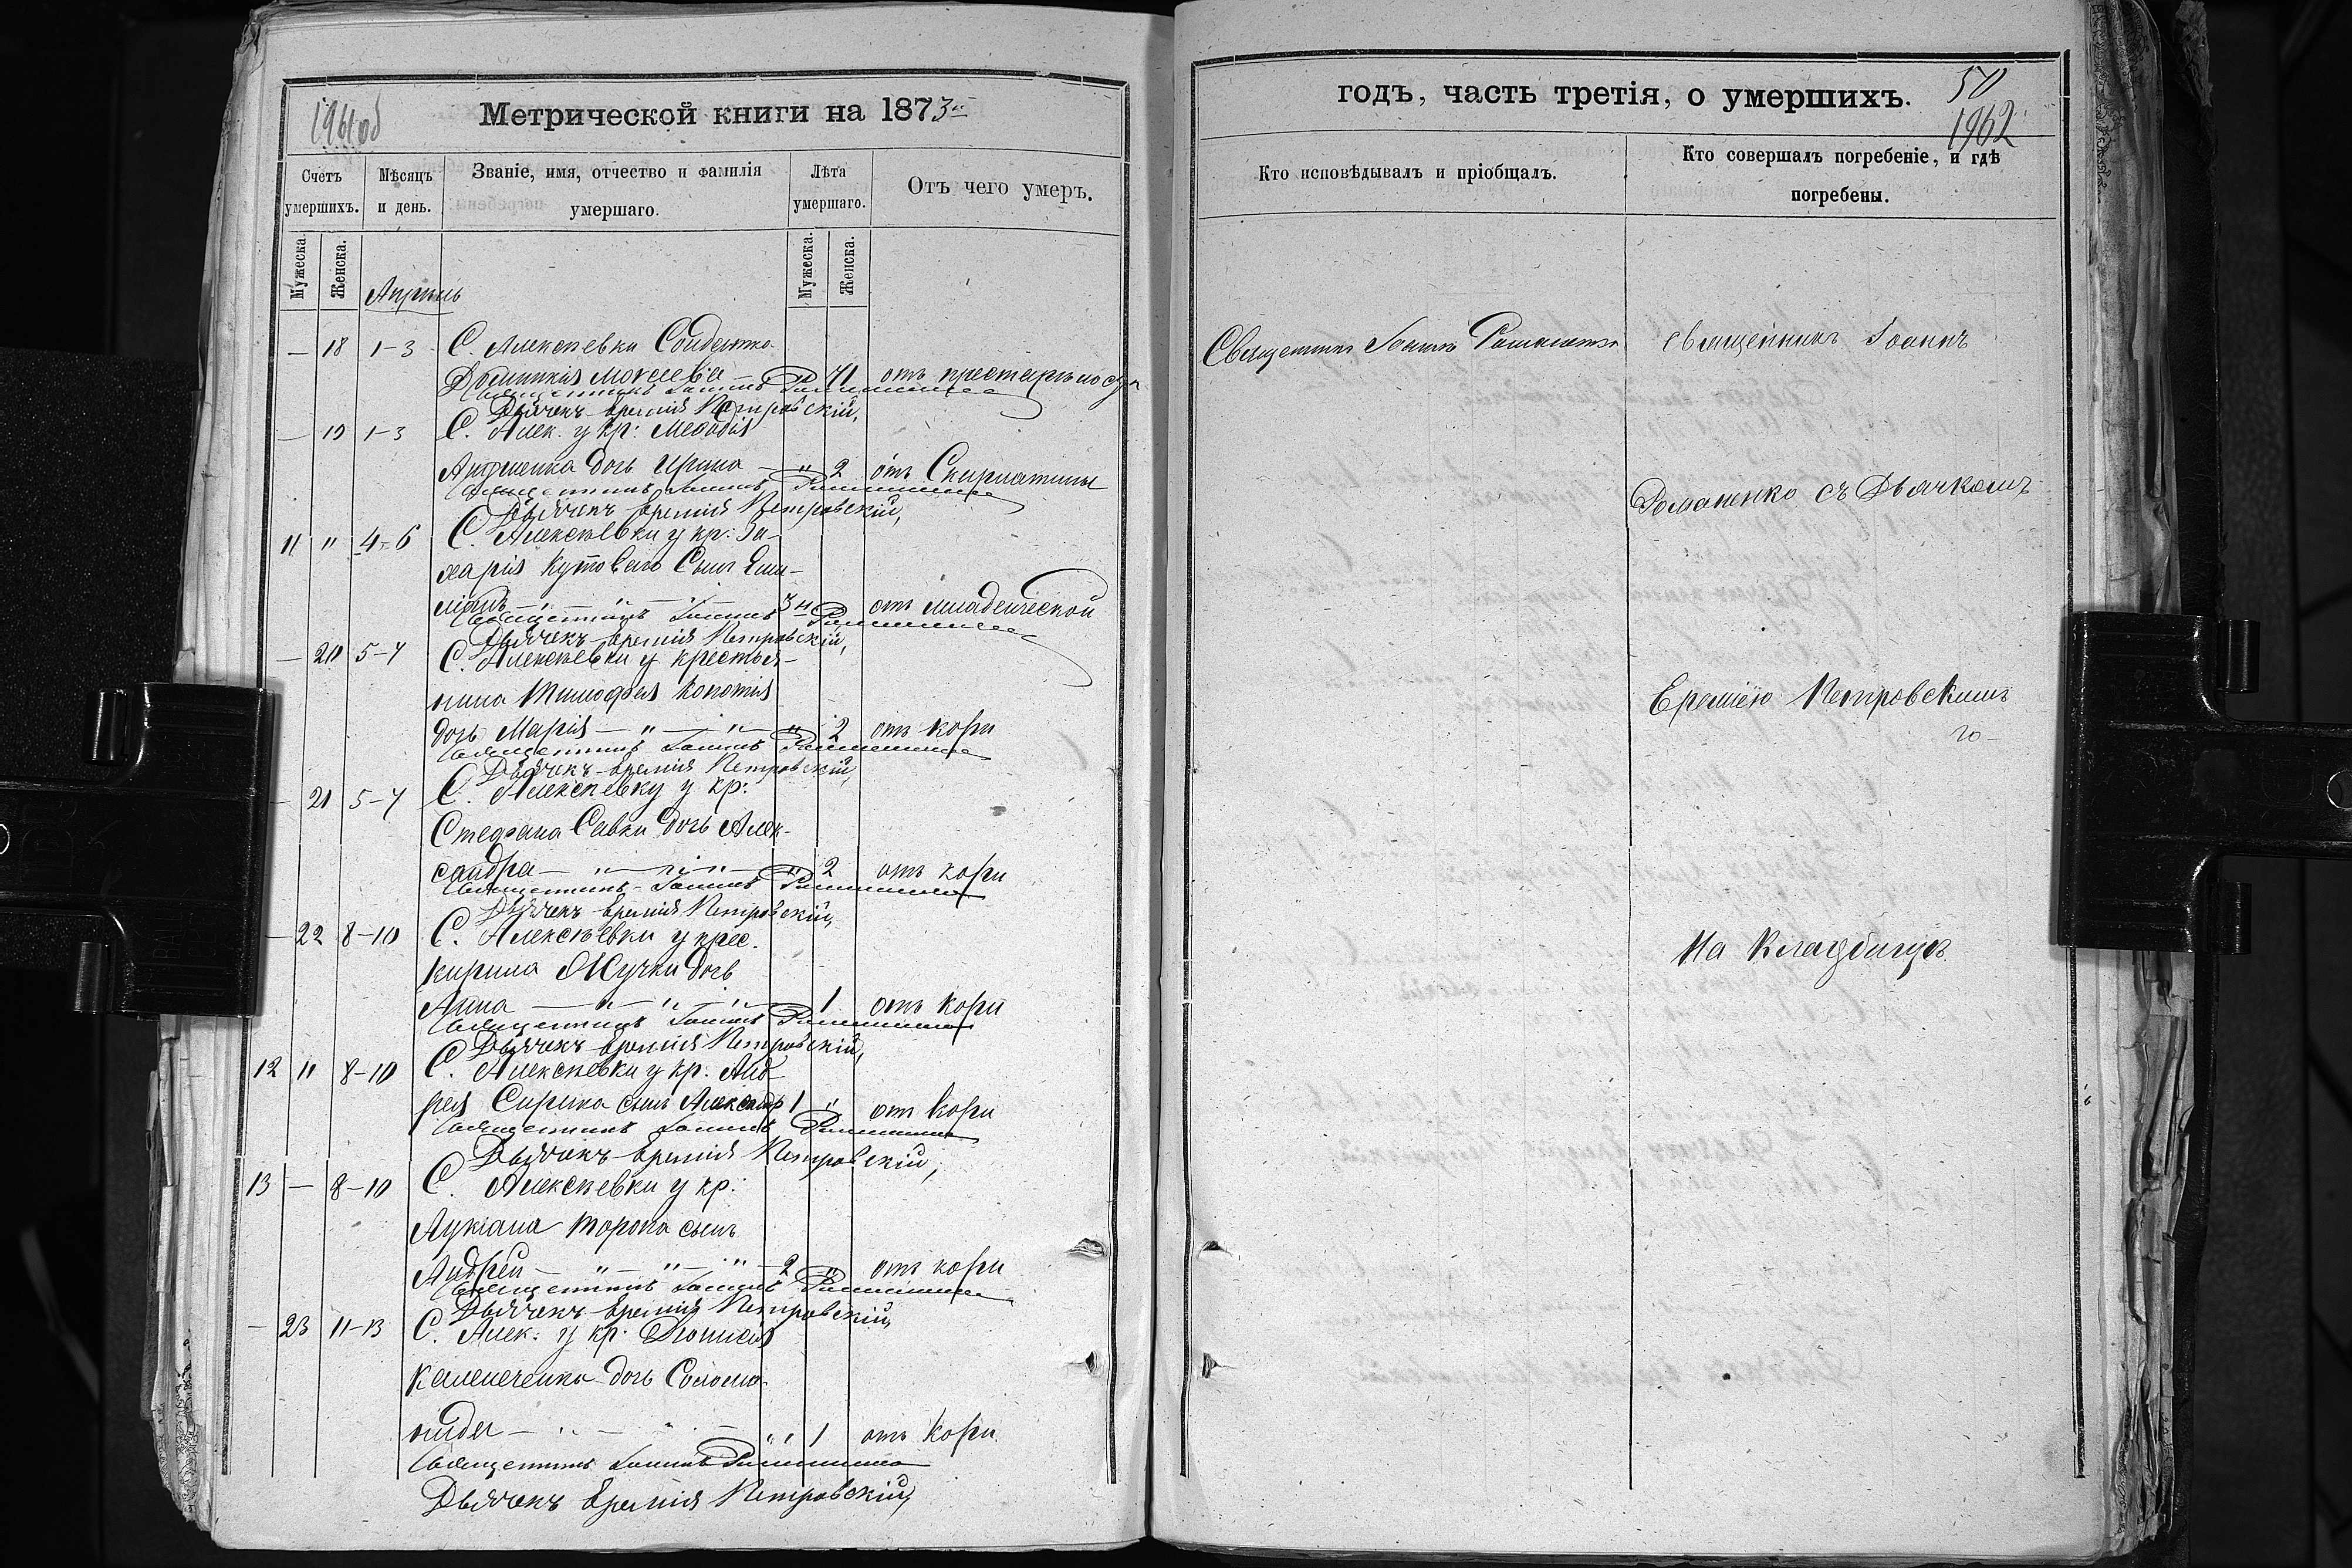 1961об
Метрической книги на 1873й
Счетъ умершихъ.
Мѣсяцъ и день.
Званіе, имя, отчество и фамилія умершаго.
Лѣта умершаго.
Отъ чего умеръ.
Мужеска.
Женска.
Мужеска.
Женска.
Апрѣль
— 18 1-3 С. Алексѣевки
Моисеева — " 71 отъ престарѣлости
Священникъ Іоаннъ Романенко
Дьячекъ Еремія Петровскій,
— 19 1-3 С. Алек. у кр: Меѳодія
дочь Ирина — " 2 отъ Скарлатины
Священникъ Іоаннъ Романенко
Дьячекъ Еремія Петровскій,
11 " 4-6 С. Алексѣевки у кр: За-
харія Кутоваго Сынъ Еми-
ліанъ — " — " 3 м отъ младенческой
Священникъ Іоаннъ Романенко
Дьячекъ Еремія Петровскій,
— 20 5-7 С. Алексѣевки у крестья-
нина Тимофея Копотія
дочь Марія — " — " — " 2 отъ кори
Священникъ Іоаннъ Романенко
Дьячекъ Еремія Петровскій,
— 21 5-7 С. Алексѣевки у кр:
Стефана Савки дочь Алек-
сандра — " — " — " 2 отъ кори
Священникъ Іоаннъ Романенко
Дьячекъ Еремія Петровскій,
— 22 8-10 С. Алексѣевки у крес.
Кирила дочь
Анна — " — " — " 1 отъ кори
Священникъ Іоаннъ Романенко
Дьячекъ Еремія Петровскій,
12 " 8-10 С. Алексѣевки у кр. Анд-
рея Сирика сынъ Александр 1 " отъ кори
Священникъ Іоаннъ Романенко
Дьячекъ Еремія Петровскій,
13 — 8-10 С. Алексѣевки у кр:
Лукіана Торопа сынъ
Андрей — " — " — " 2 " отъ кори
Священникъ Іоаннъ Романенко
Дьячекъ Еремія Петровскій,
— 23 11-13 С. Алек: у кр: Діонисія
Каменченка дочь Соломо-
нида — " — " " 1 отъ кори
Священникъ Іоаннъ Романенко
Дьячекъ Еремія Петровскій,
годъ, часть третія, о умершихъ.
50
1962
Кто исповѣдывалъ и пріобщалъ.
Кто совершалъ погребеніе, и гдѣ погребены.
Священникъ Іоаннъ Романенко
Священникъ Іоаннъ
Романенко съ Дьячкомъ
Ереміею Петровскимъ
На Кладбищѣ.